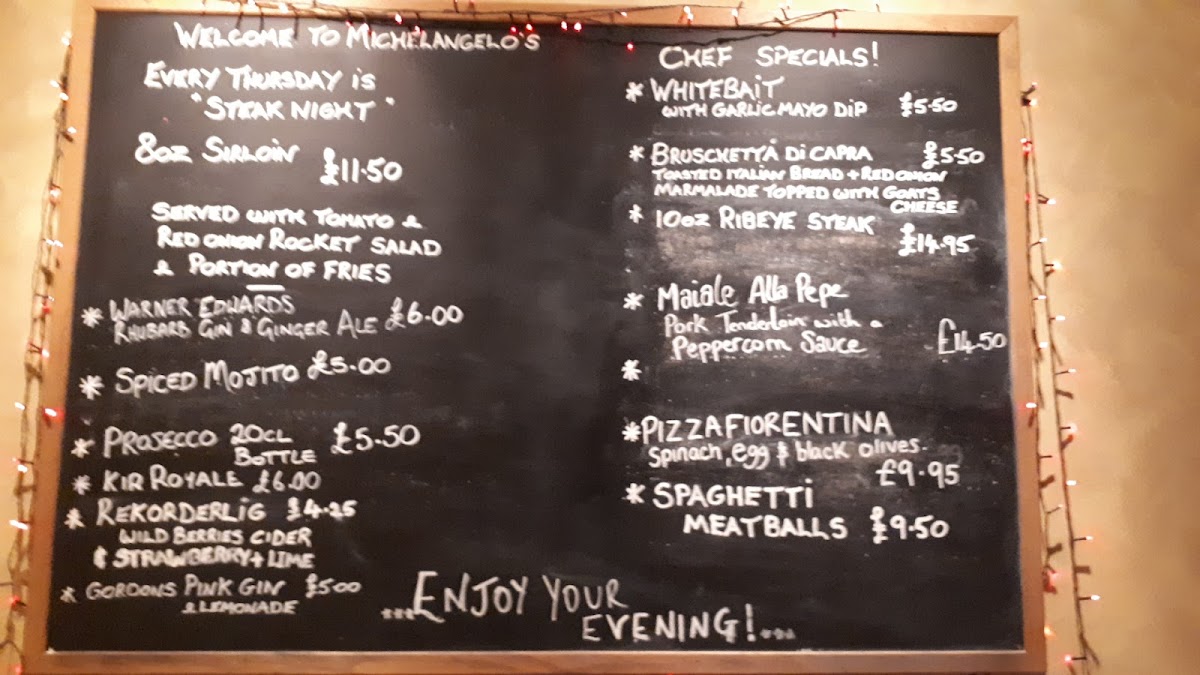 WELCOME TO MICHELANGELO'S
EVERY THURSDAY IS
"STEAK NIGHT"
8oz SIRLOIN £11.50
SERVED WITH TOMATO &
RED ONION ROCKET SALAD
& PORTION OF FRIES
* WARNER EDWARDS
RHUBARB GIN & GINGER ALE £6.00
* SPICED MOJITO £5.00
* PROSECCO 20CL £5.50
BOTTLE
* KIR ROYALE £6.00
* REKORDERLIG £4.25
WILD BERRIES CIDER
& STRAWBERRY + LIME
* GORDONS PINK GIN £5.00
& LEMONADE
CHEF SPECIALS!
* WHITEBAIT
WITH GARLIC MAYO DIP £5.50
* BRUSCHETTA DI CAPRA £5.50
TOASTED ITALIAN BREAD + RED ONION
MARMALADE TOPPED WITH GOATS
CHEESE
* 10oz RIBEYE STEAK
£14.95
* Maiale Alla Pepe
Pork Tenderloin with a
Peppercorn Sauce £14.50
*
* PIZZA FIORENTINA
Spinach, egg & black olives.
£9.95
* SPAGHETTI
MEATBALLS £9.50
...ENJOY YOUR
EVENING!...